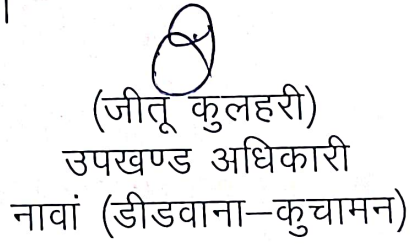 (जीतू कुलहरी)
उपखण्ड अधिकारी
नावां (डीडवाना–कुचामन)